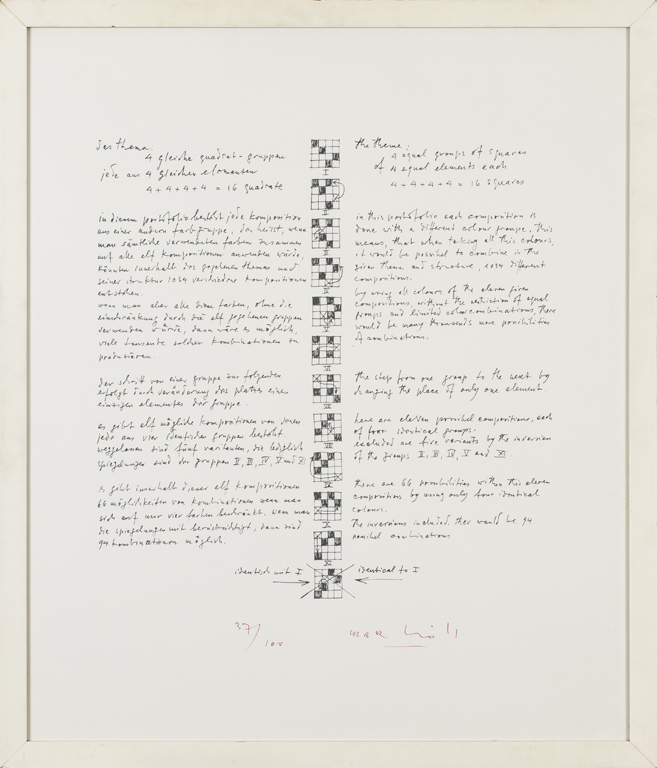 das thema:
4 gleiche quadrat-gruppen
jede aus 4 gleichen elementen
4+4+4+4 = 16 quadrate
in diesem portofolio besteht jede komposition
aus einer andern farbgruppe, das heisst, wenn
man sämtliche verwendeten farben zusammen
auf alle elf kompositionen anwenden würde,
könnten innerhalb des gegebenen themas und
seiner struktur 1024 verschiedene kompositionen
entstehen.
wenn man aber alle diese farben, ohne die
einschränkung durch die elf gegebenen gruppen
verwenden würde, dann wäre es möglich,
viele tausende solcher kombinationen zu
produzieren.
der schritt von einer gruppe zur folgenden
erfolgt durch veränderung des platzes eines
einzigen elementes der gruppe.
es gibt elf mögliche kompositionen von denen
jede aus vier identischen gruppen besteht.
weggelassen sind fünf varianten, die lediglich
spiegelungen sind der gruppen II, III, IV, V und XI
es gibt innerhalb dieser elf kompositionen
66 möglichkeiten von kombinationen wenn man
sich auf nur vier farben beschränkt. wenn man
die spiegelungen mit berücksichtigt, dann sind
94 kombinationen möglich.
identisch mit I
the theme:
4 equal groups of squares
of 4 equal elements each
4+4+4+4 = 16 squares
in this portofolio each composition is
done with a different colour groupe, this
means, that when taking all this colours,
it would be possibel to combine in the
given theme and structure, 1024 different
compositions.
by using all colours of the eleven given
compositions, without the restriction of equal
groups and limited colorcombinations, there
would be many thousends more possibilities
of combinations.
the step from one group to the next by
changing the place of only one element
here are eleven possibel compositions, each
of four identical groups.
excluded are five variants by the inversion
of the groups II, III, IV, V and XI.
there are 66 possibilities within this eleven
compositions by using only four identical
colours.
the inversions included, there would be 94
possibel combinations
identical to I
I
VI
XI
37/100
max bill